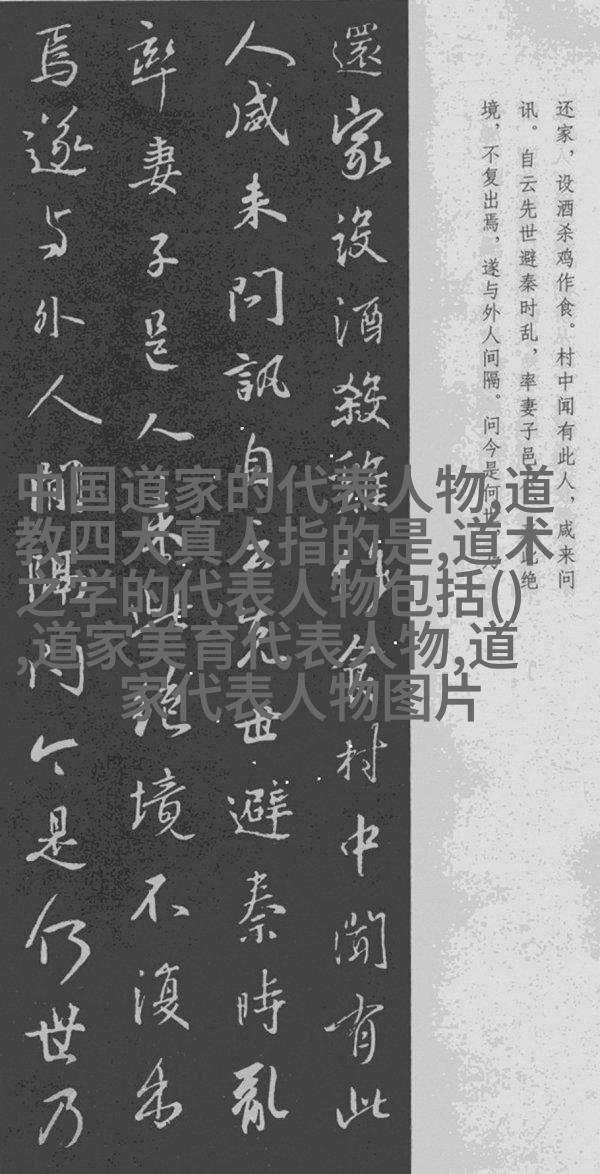 还家，设酒杀鸡作食。村中闻有此人，咸来问
讯。自云先世避秦时乱，率妻子邑此绝
境，不复出焉，遂与外人间隔。问今是何世，乃
還家設酒殺雞作食村中聞有此
人咸来問訊自云先世避秦時亂
率妻子邑人来此絶境不復出
焉遂与外人間隔問今是何世乃
中国道家的代表人物,道
教四大真人指的是,道术
之学的代表人物包括()
,道家美育代表人物,道
家代表人物图片